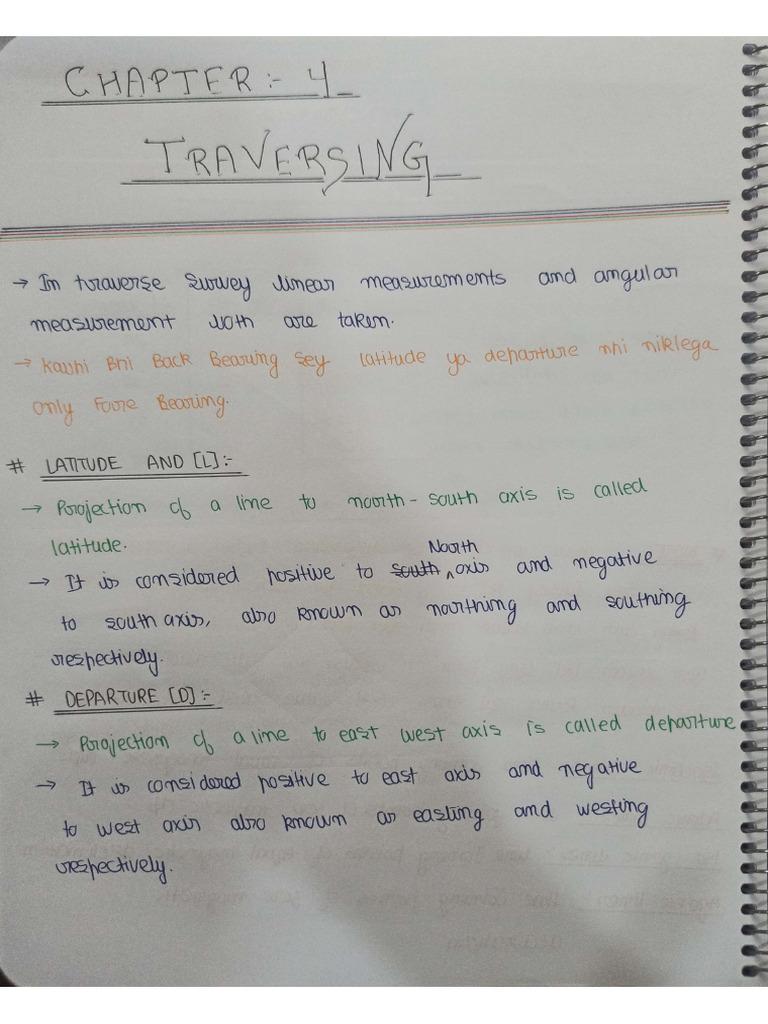 CHAPTER:- 4
TRAVERSING
→ In traverse survey linear measurements and angular
measurement both are taken.
→ Kabhi Bhi Back Bearing sey latitude ya departure nhi niklega
only Fore Bearing.
# LATITUDE AND [L]:-
→ Projection of a line to north-south axis is called
latitude.
North
→ It is considered positive to south ^ axis and negative
to south axis, also known as northing and southing
respectively.
# DEPARTURE [D]:-
→ Projection of a line to east west axis is called departure
→ It is considered positive to east axis and negative
to west axis also known as easting and westing
respectively.